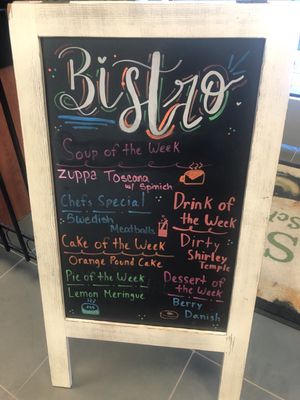 Bistro
Soup of the Week
Zuppa Toscana
w/ Spinich
Chefs Special
Swedish
Meatballs
Drink of
the Week
Dirty
Shirley
Temple
Cake of the Week
Orange Pound Cake
Pie of the Week
Lemon Meringue
Dessert of
the Week
Berry
Danish